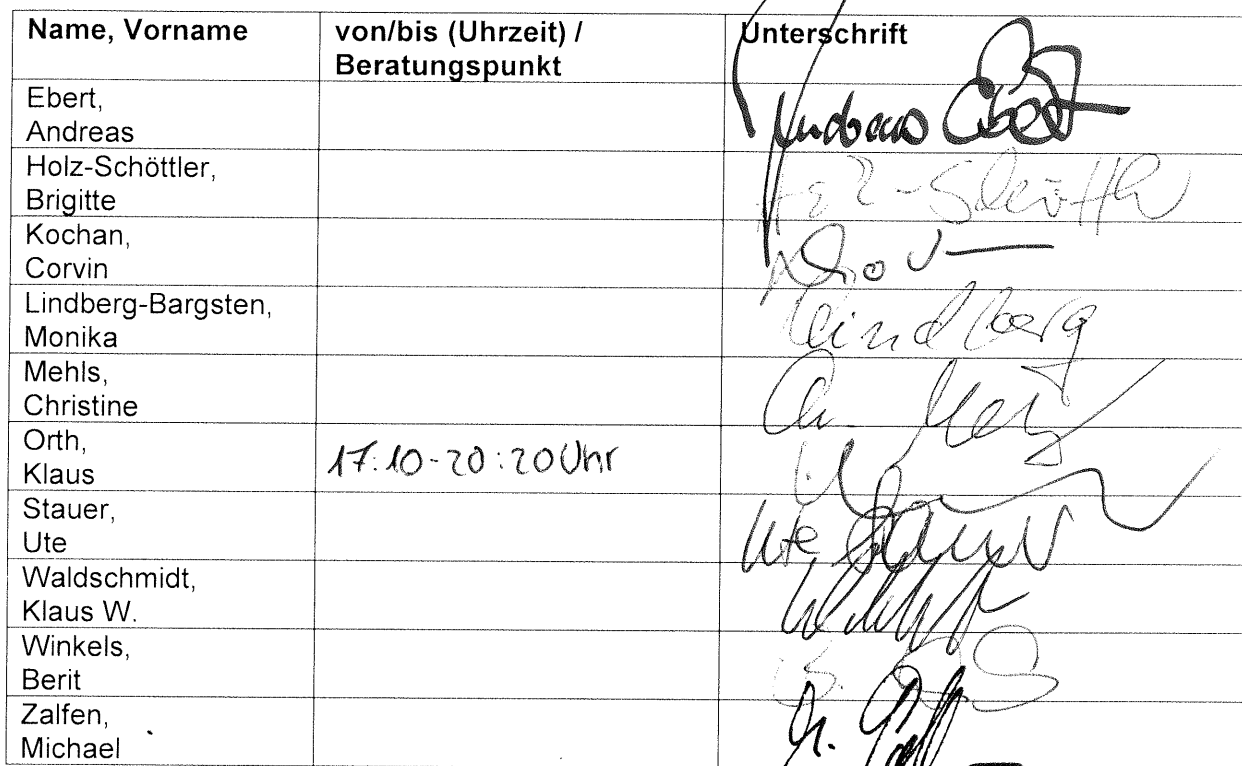 Name, Vorname von/bis (Uhrzeit) / Unterschrift
Beratungspunkt
Ebert,
Andreas Andreas Ebert
Holz-Schöttler,
Brigitte Holz-Schöttler
Kochan,
Corvin
Lindberg-Bargsten,
Monika Lindberg
Mehls,
Christine
Orth,
Klaus 17:10-20:20 Uhr
Stauer,
Ute Ute Stauer
Waldschmidt,
Klaus W.
Winkels,
Berit
Zalfen,
Michael